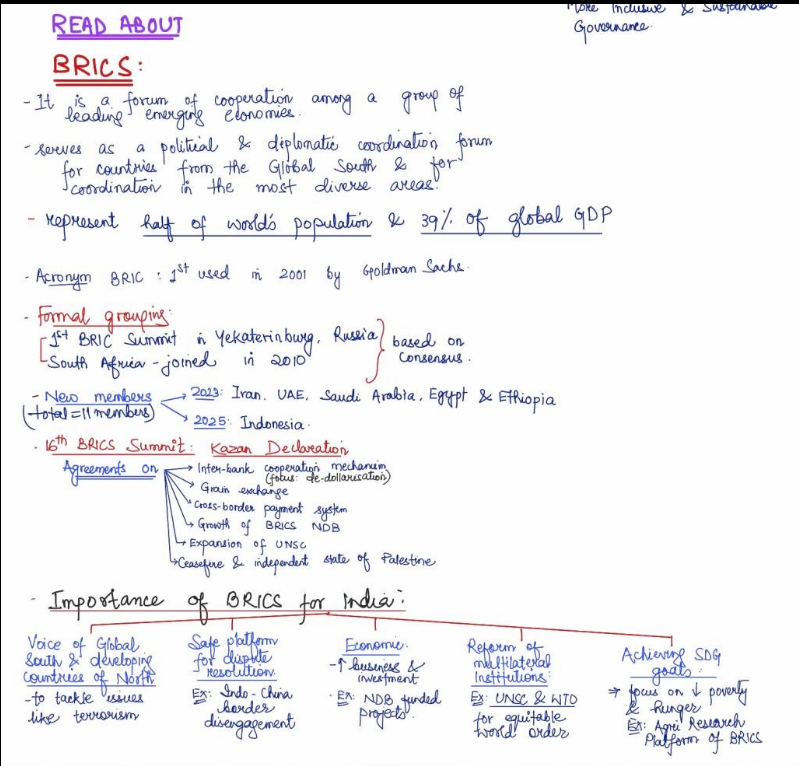 More Inclusive & Sustainable
Governance.
READ ABOUT
BRICS:
- It is a forum of cooperation among a group of
leading emerging economies.
- serves as a political & diplomatic coordination forum
for countries from the Global South & for
coordination in the most diverse areas.
- represent half of world's population & 39% of global GDP
- Acronym BRIC : 1st used in 2001 by Goldman Sachs.
- Formal grouping:
1st BRIC Summit in Yekaterinburg, Russia
South Africa - joined in 2010
based on
Consensus.
- New members
(total = 11 members)
→ 2023: Iran, UAE, Saudi Arabia, Egypt & Ethiopia
→ 2025: Indonesia.
· 16th BRICS Summit: Kazan Declaration
Agreements on
→ Inter-bank cooperation mechanism
(focus: de-dollarisation)
→ Grain exchange
→ Cross-border payment system
→ Growth of BRICS NDB
→ Expansion of UNSC
→ Ceasefire & independent state of Palestine
- Importance of BRICS for India:
Voice of Global
South & developing
Countries of North
- to tackle issues
like terrorism
Safe platform
for dispute
resolution.
Ex: Indo-China
border
disengagement
Economic:
- ↑ business &
investment
· Ex: NDB funded
projects.
Reform of
multilateral
Institutions:
Ex: UNSC & WTO
for equitable
world order
Achieving SDG
goals:
→ focus on ↓ poverty
& hunger
Ex: Agri Research
Platform of BRICS